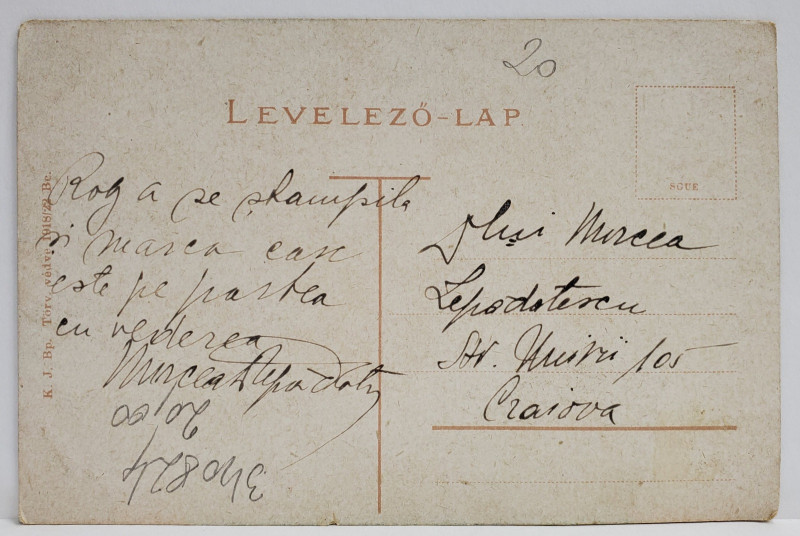 20
LEVELEZŐ-LAP
SGUE
K. J. Bp. Törv. védve 1918/22 Bc.
Rog a se ștampila
și marca care
este pe partea
cu vederea
Mircea Lepădat
Mircea
Lepădatescu
Str. Unirii 105
Craiova